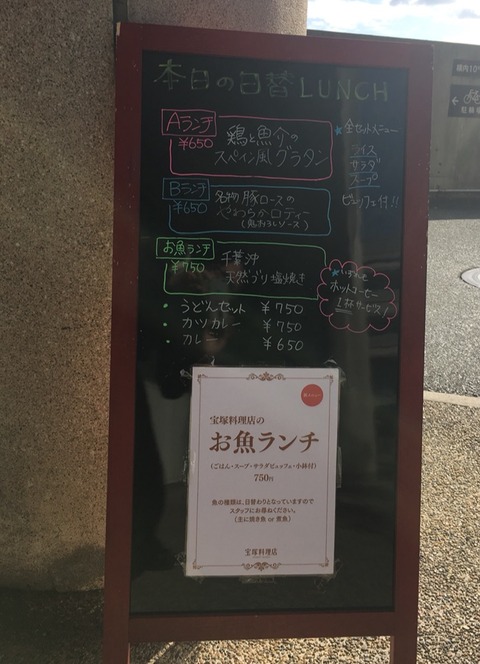 本日の日替LUNCH
Aランチ
¥650
鶏と魚介の
スペイン風グラタン
Bランチ
¥650
名物豚ロースの
やわらかロティー
(鬼おろしソース)
お魚ランチ
¥750
千葉沖
天然ブリ塩焼き
★全セットメニュー
ライス
サラダ
スープ
ビュッフェ付!!
ホットコーヒー
1杯サービス!
・うどんセット ¥750
・カツカレー ¥750
・カレー ¥650
宝塚料理店の
お魚ランチ
(ごはん・スープ・サラダビュッフェ・小鉢付)
750円
魚の種類は、日替わりとなっていますので
スタッフにお尋ねください。
(主に焼き魚 or 煮魚)
宝塚料理店